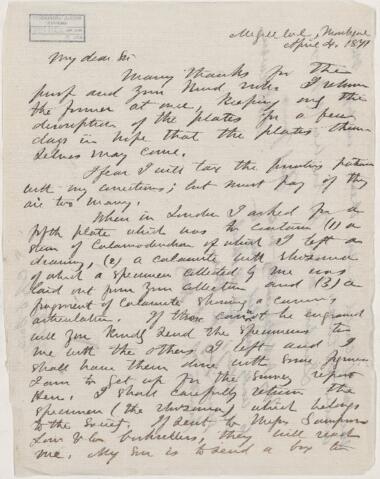 McGill Col., Montreal
April 4, 1871
My dear Sir
Many thanks for the
proof and your kind note. I return
the former at once, keeping only the
description of the plates for a few
days in hope that the plates them
selves may come.
I fear I will tax the printers patience
with my corrections; but must pay if they
are too many.
When in London I asked for a
fifth plate which was to contain (1) a
stem of Calamodendron of which I left a
drawing, (2) a calamite with rhizomes
of which a specimen collected by me was
laid out from your collection and (3) a
fragment of Calamite showing a curious
articulation. If these cannot be engraved
will you kindly send the specimens to
me with the others I left and I
shall have them done with some figures
I am to get up for the survey report
here. I shall carefully return the
specimen (the rhizoma) which belongs
to the Society. If sent to Messrs Sampson
Low & Co booksellers, they will reach
me. My son is to send a box to